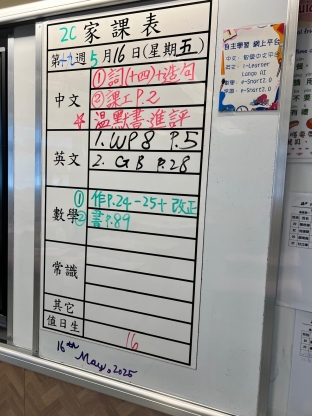 2C 家課表
第十九週 5月16日(星期五)
中文
①詞(十四)+造句
②課工P.2
☆溫默書、進評
英文
1. WP8 P.5
2. GB P.28
數學
①作P.24-25+改正
②書P.89
常識
其它
值日生
16
16th May, 2025
自主學習 網上平台
中文:智愛中文平台
英文: i-Learner
Lango AI
數學: e-Smart2.0
e-Smart2.0